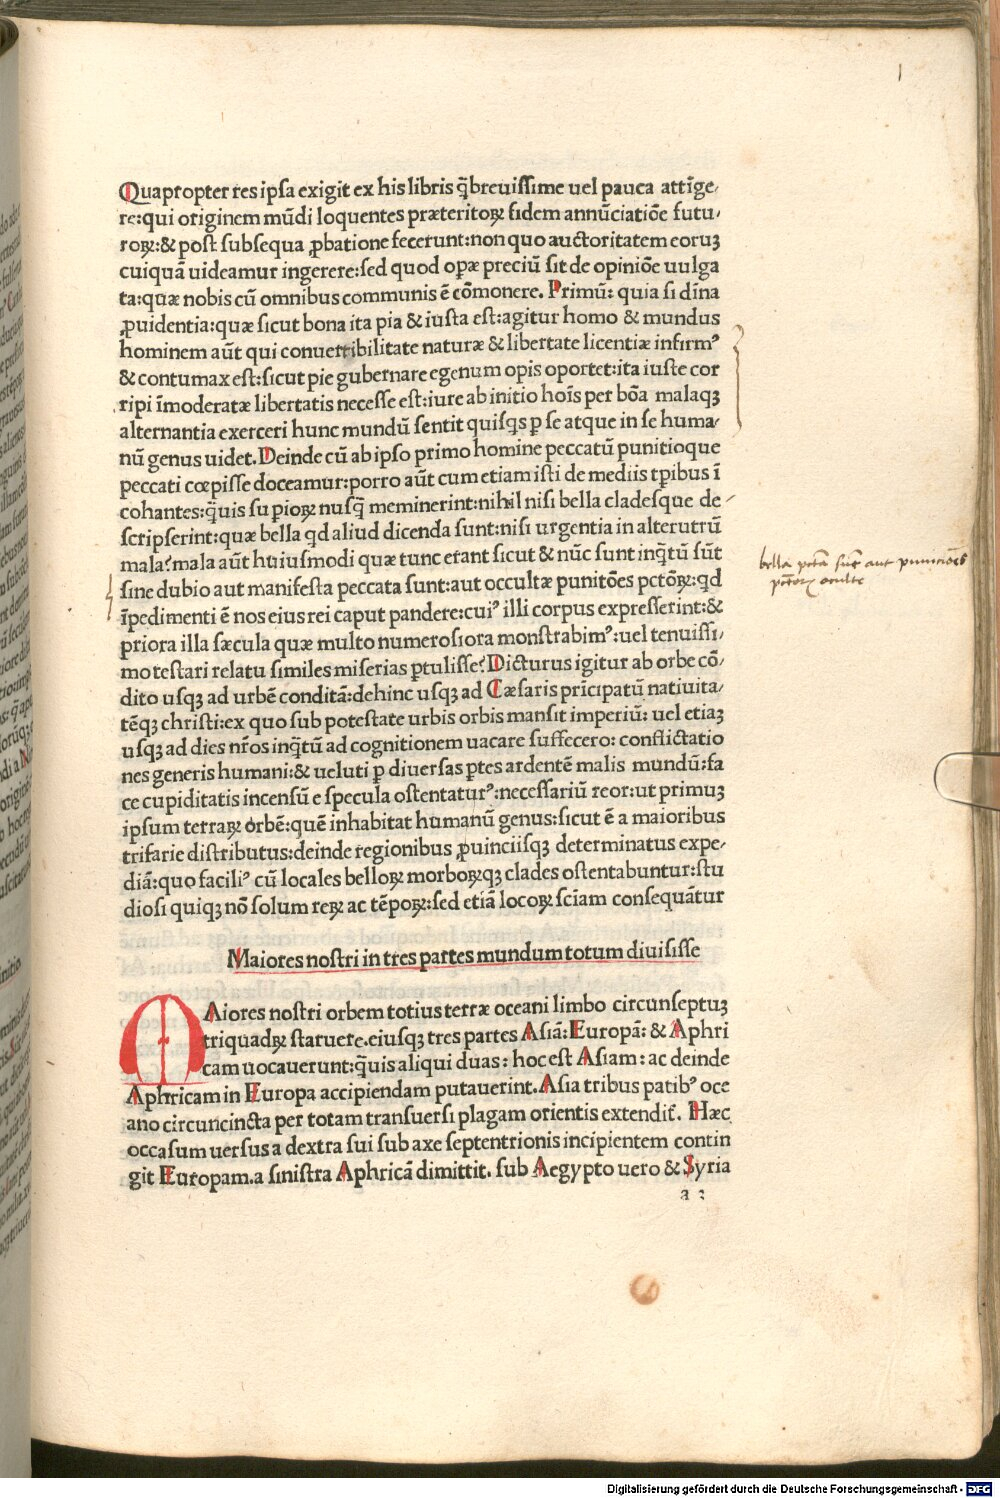 Quapropter res ipsa exigit ex his libris q̃breuissime uel pauca attĩge/
re:qui originem mũdi loquentes præteritoꝝ fidem annũciatiõe futu/
roꝝ:& post subsequa ꝓbatione fecerunt:non quo auctoritatem eoruꝫ
cuiquã uideamur ingerere:sed quod opæ preciũ sit de opiniõe uulga
ta:quæ nobis cũ omnibus communis ẽ cõmonere. Primũ: quia si dĩna
ꝓuidentia:quæ sicut bona ita pia & iusta est:agitur homo & mundus
hominem aũt qui conuertibilitate naturæ & libertate licentiæ infirmꝰ
& contumax est:sicut pie gubernare egenum opis oportet:ita iuste cor
ripi ĩmoderatæ libertatis necesse est:iure ab initio hoĩs per bõa malaqꝫ
alternantia exerceri hunc mundũ sentit quisqs ꝑ se atque in se huma/
nũ genus uidet. Deinde cũ ab ipso primo homine peccatũ punitioque
peccati cœpisse doceamur:porro aũt cum etiam isti de mediis tꝑibus ĩ
cohantes:q̃uis supioꝝ nusq̃ meminerint:nihil nisi bella cladesque de/
scripserint:quæ bella qd aliud dicenda sunt:nisi urgentia in alterutrũ
mala?mala aũt huiusmodi quæ tunc erant sicut & nũc sunt inq̃tũ sũt
sine dubio aut manifesta peccata sunt:aut occultæ punitões pctõꝝ:qd
ĩpedimenti ẽ nos eius rei caput pandere:cuiꝰ illi corpus expresserint:&
priora illa sæcula quæ multo numerosiora monstrabimꝰ:uel tenuissi/
mo testari relatu similes miserias ꝑtulisse? Dicturus igitur ab orbe cõ/
dito usqꝫ ad urbẽ conditã:dehinc usqꝫ ad Cæsaris prĩcipatũ natiuita/
tẽqꝫ christi:ex quo sub potestate urbis orbis mansit imperiũ: uel etiaꝫ
usqꝫ ad dies nr̃os inq̃tũ ad cognitionem uacare suffecero: conflictatio
nes generis humani:& ueluti ꝑ diuersas ꝑtes ardentẽ malis mundũ:fa
ce cupiditatis incensũ e specula ostentaturꝰ:necessariũ reor:ut primuꝫ
ipsum terraꝝ orbẽ:quẽ inhabitat humanũ genus:sicut ẽ a maioribus
trifarie distributus:deinde regionibus ꝓuinciisqꝫ determinatus expe/
diã:quo faciliꝰ cũ locales belloꝝ morboꝝqꝫ clades ostentabuntur:stu
diosi quiqꝫ nõ solum reꝝ ac tẽpoꝝ:sed etiã locoꝝ sciam consequãtur
Maiores nostri in tres partes mundum totum diuisisse
MAiores nostri orbem totius terræ oceani limbo circunseptuꝫ
triquadꝝ statuere.eiusqꝫ tres partes Asiã: Europã: & Aphri
cam uocauerunt:q̃uis aliqui duas: hoc est Asiam: ac deinde
Aphricam in Europa accipiendam putauerint. Asia tribus patibꝰ oce
ano circuncincta per totam transuersi plagam orientis extendit̃. Hæc
occasum uersus a dextra sui sub axe septentrionis incipientem contin
git Europam.a sinistra Aphricã dimittit. sub Aegypto uero & Syria
a 3
1
bella pctã sũt aut puniciões
pctõꝝ oculte
Digitalisierung gefördert durch die Deutsche Forschungsgemeinschaft - DFG